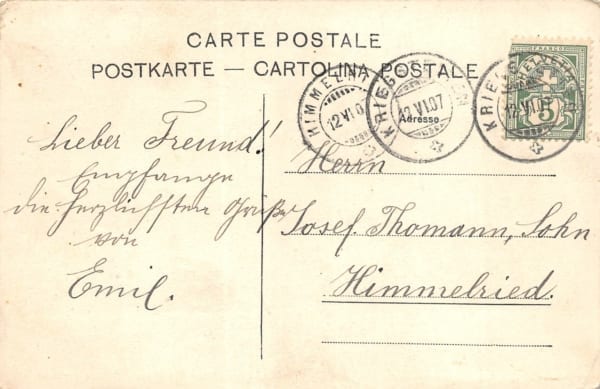 CARTE POSTALE
POSTKARTE — CARTOLINA POSTALE
12 VI 07
KRIEGSTETTEN
12.VI.07
Adresse
FRANCO
HELVETIA
5
12.VI.07
Lieber Freund!
Empfange
die herzlichsten Grüße
von
Emil.
Herrn
Josef Thomann, Sohn
Himmelried.